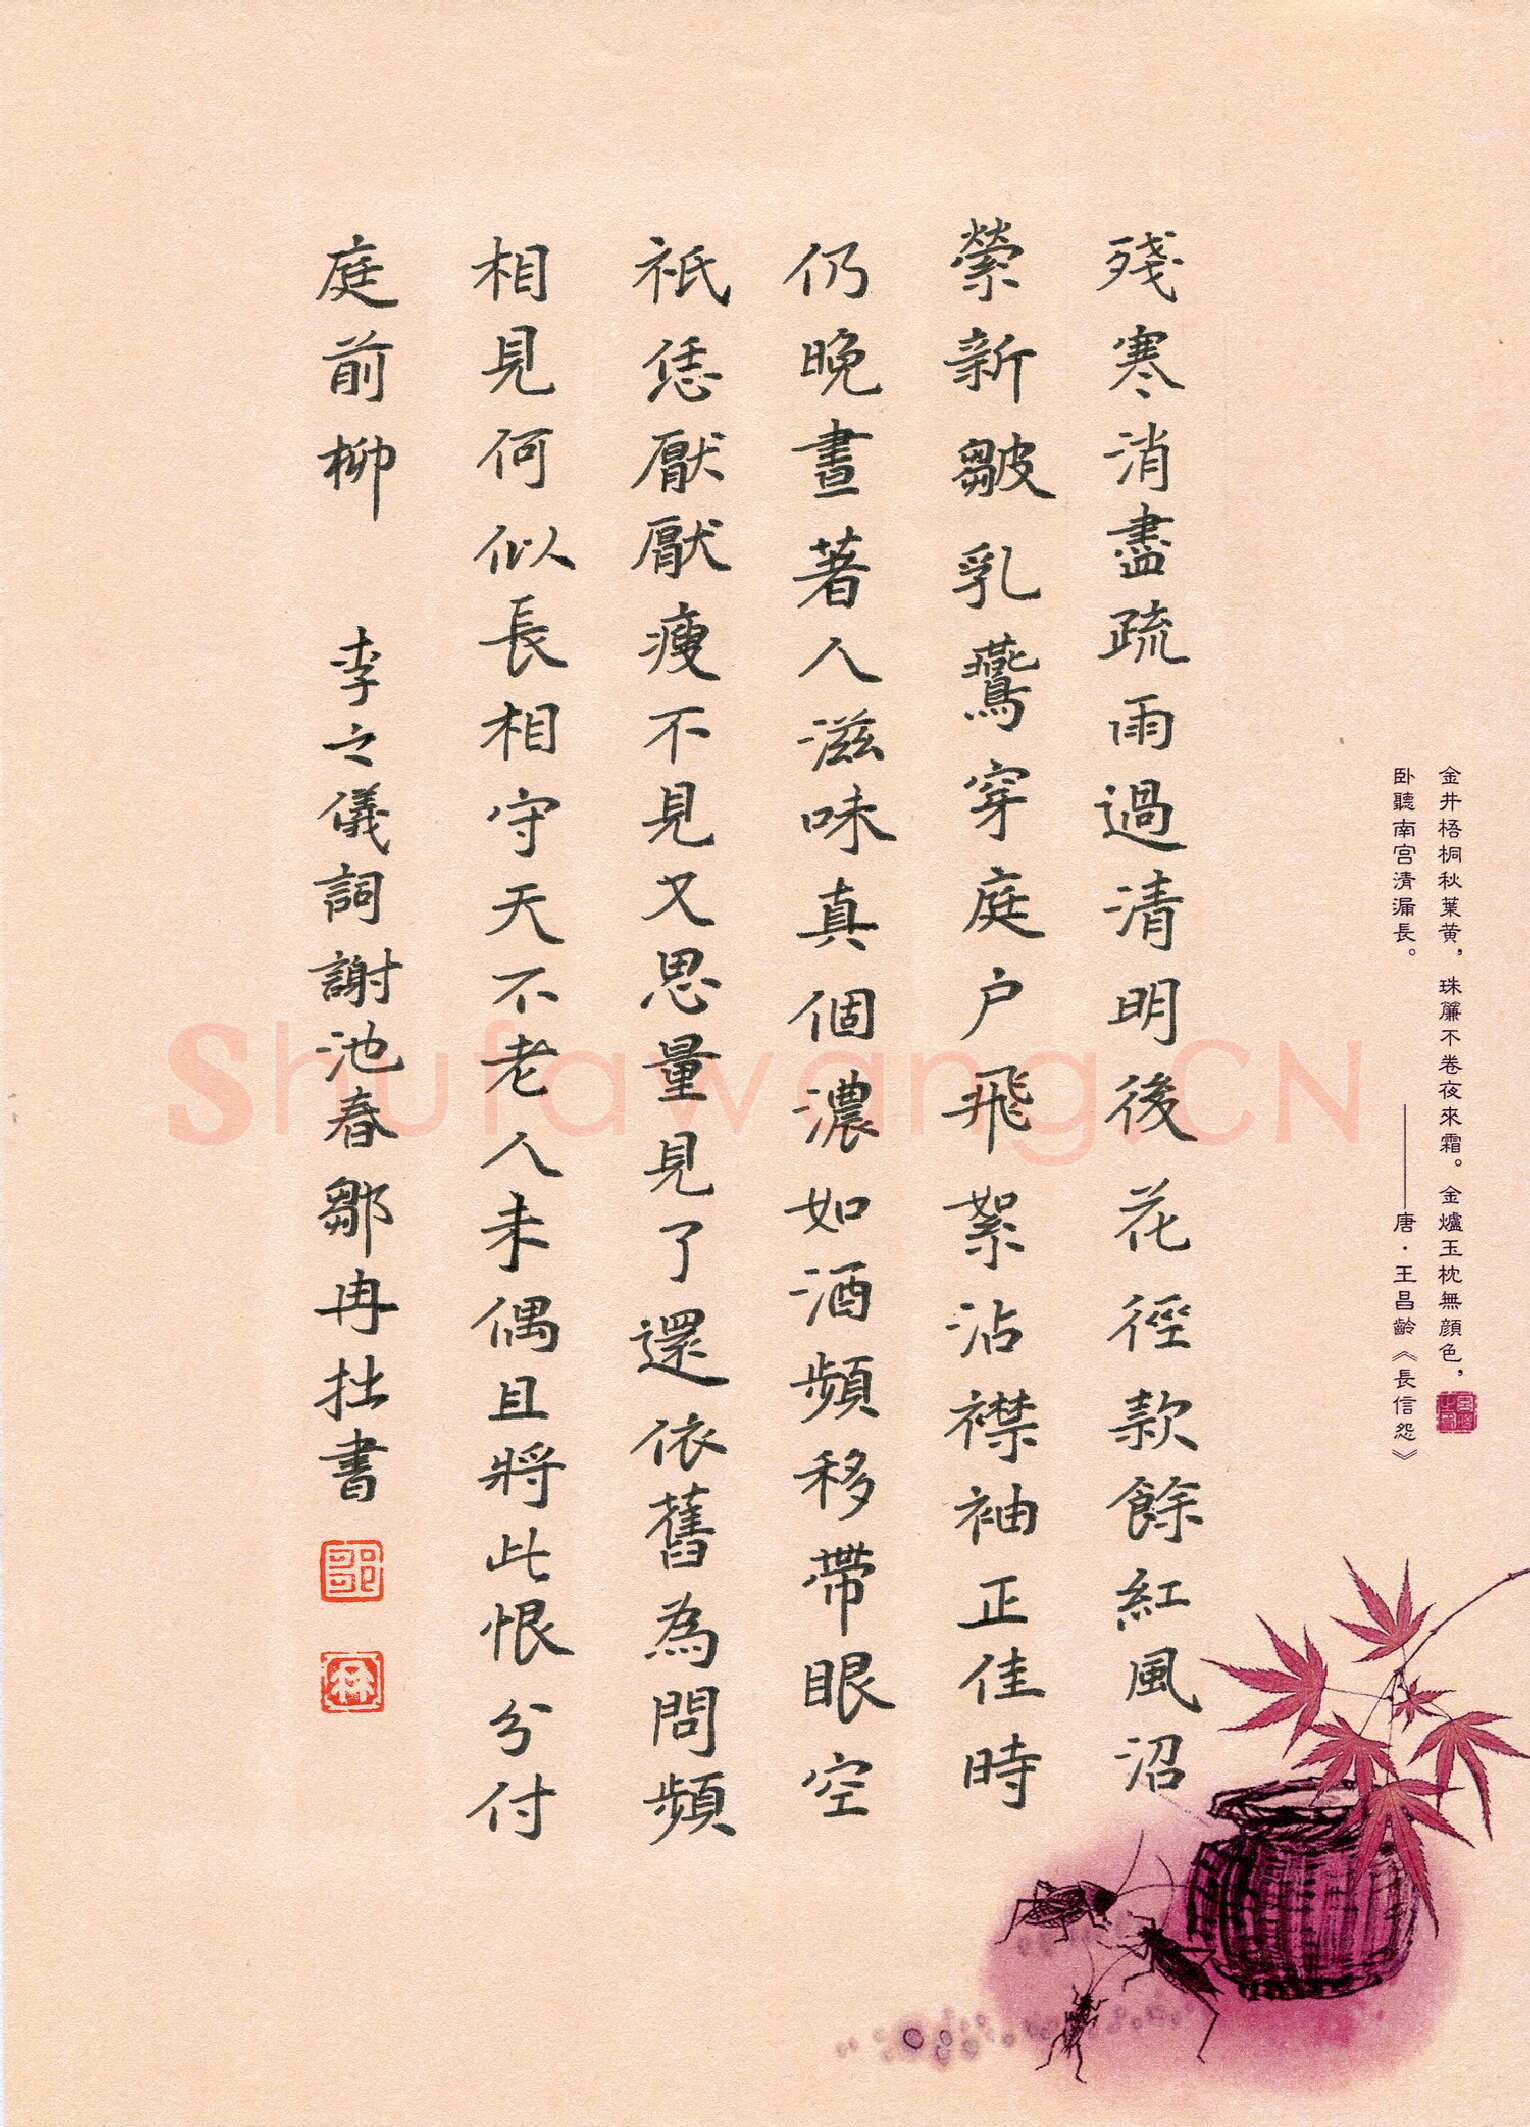 殘寒消盡疏雨過清明後花徑款餘紅風沼
縈新皺乳鷰穿庭户飛絮沾襟袖正佳時
仍晚晝著人滋味真個濃如酒頻移帶眼空
衹恁厭厭瘦不見又思量見了還依舊為問頻
相見何似長相守天不老人未偶且將此恨分付
庭前柳 李之儀詞謝池春鄒冉拙書
金井梧桐秋葉黄，珠簾不卷夜來霜。金爐玉枕無顔色，
卧聽南宫清漏長。
——唐·王昌齡《長信怨》
Shufawang.CN